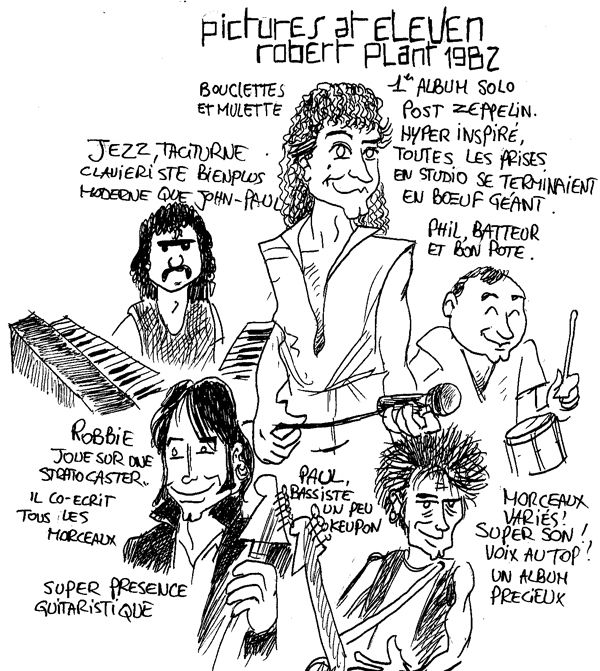 pictures at ELEVEN
robert PLANT 1982
BOUCLETTES
ET MULETTE
1er ALBUM SOLO
POST ZEPPELIN.
HYPER INSPIRÉ,
TOUTES LES PRISES
EN STUDIO SE TERMINAIENT
EN BŒUF GÉANT.
JEZZ, TACITURNE.
CLAVIERISTE BIEN PLUS
MODERNE QUE JOHN-PAUL
PHIL, BATTEUR
ET BON POTE.
ROBBIE
JOUE SUR UNE
STRATOCASTER..
IL CO-ECRIT
TOUS LES
MORCEAUX
SUPER PRESENCE
GUITARISTIQUE
PAUL,
BASSISTE
UN PEU
KEUPON
MORCEAUX
VARIÉS!
SUPER SON!
VOIX AU TOP!
UN ALBUM
PRECIEUX